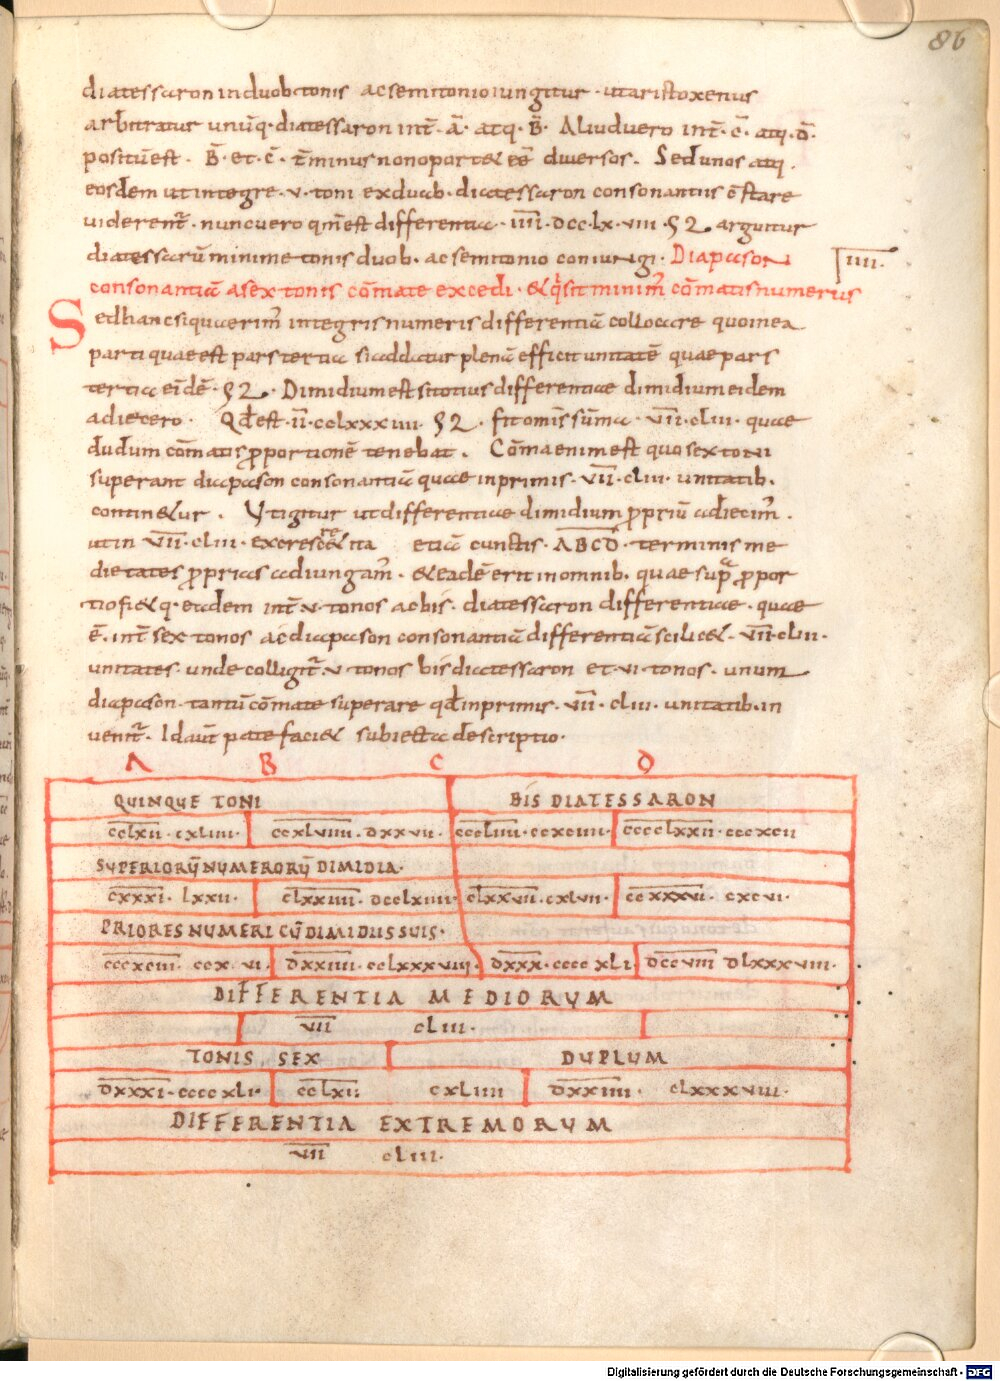 86
diatessaron in duob· tonis ac semitonio iungitur · ut aristoxenus
arbitratur unūq· diatessaron int̄ · ā · atq· b̄ · Aliud uero int̄ · c̄ · atq· d̄·
positū est · b̄ · et · c̄ · t̄minus non oportet eē diuersos. Sed unos atq·
eosdem ut integre · v · toni ex duab· diatessaron consonantiis c̄stare
uiderent̄ · nunc uero qm̄ est differentia · īīīī · dcc·lx·viii · ϚƧ· arguitur
diatessarū minime tonis duob· ac semitonio coniungi · Diapason
IIII·
consonantiā a sex tonis cōmate excedi · & q̇ sit minim̄ cōmatis numerus
Sed hanc si quaerim̄ integris numeris differentiā collocare quo in ea
parti quae est pars tertia si addatur plenā efficit unitatē quae pars
tertia eidē · ϚƧ· Dimidium est si totius differentiae dimidium eidem
adiecero · Qd̄ est · īī·cclxxxiiii· ϚƧ · fit omīs sūma · v̄īī·cliii· quae
dudum cōmatis pportionē tenebat · Cōma enim est quo sex toni
superant diapason consonantiā quae in primis · v̄īī·cliii· unitatib·
continetur · Ut igitur ut differentiae dimidium ppriū adiecim̄ ·
ut in v̄īī·cliii· excresceret ita etiā cunctis · ABCD · terminis me
dietates pprias adiungam̄ · & eadē erit in omnib· quae sup̄ ppor
tio fietq· eadem int̄ · v · tonos ac bis · diatessaron differentiae · quae
ē · int̄ sex tonos ac diapason consonantiā differentiā scilicet · v̄īī·cliii·
unitates · unde colligit̄ · v · tonos bis diatessaron et · vi · tonos · unum
diapason · tantū cōmate superare qd̄ in primis · v̄īī · cliii · unitatib· in
uenit̄ · Id aūt patefaciet subiecta descriptio·
A B C D
QUINQUE TONI BIS DIATESSARON
cclxii · cxliiii· ccxlviiii · dxxvii· ccliiii·ccxciiii· cccclxxii·cccxcii
SUPERIORŪ NUMERORŪ DIMIDIA·
cxxxi· lxxii· clxxiiii· dcclxiiii· clxxvii·cxlvii· ccxxxvi· cxcvi·
PRIORES NUMERI CŪ DIMIDIIS SUIS·
cccxciii· ccx·vi· dxxiiii·cclxxxviiii· dxxx·ccccxli· dccviii dlxxxviii·
DIFFERENTIA MEDIORUM
vii cliii·
TONIS SEX DUPLUM
dxxxi·ccccxli· cclxii cxliiii dxxiiii· clxxxviii·
DIFFERENTIA EXTREMORUM
vii cliii·
Digitalisierung gefördert durch die Deutsche Forschungsgemeinschaft - DFG